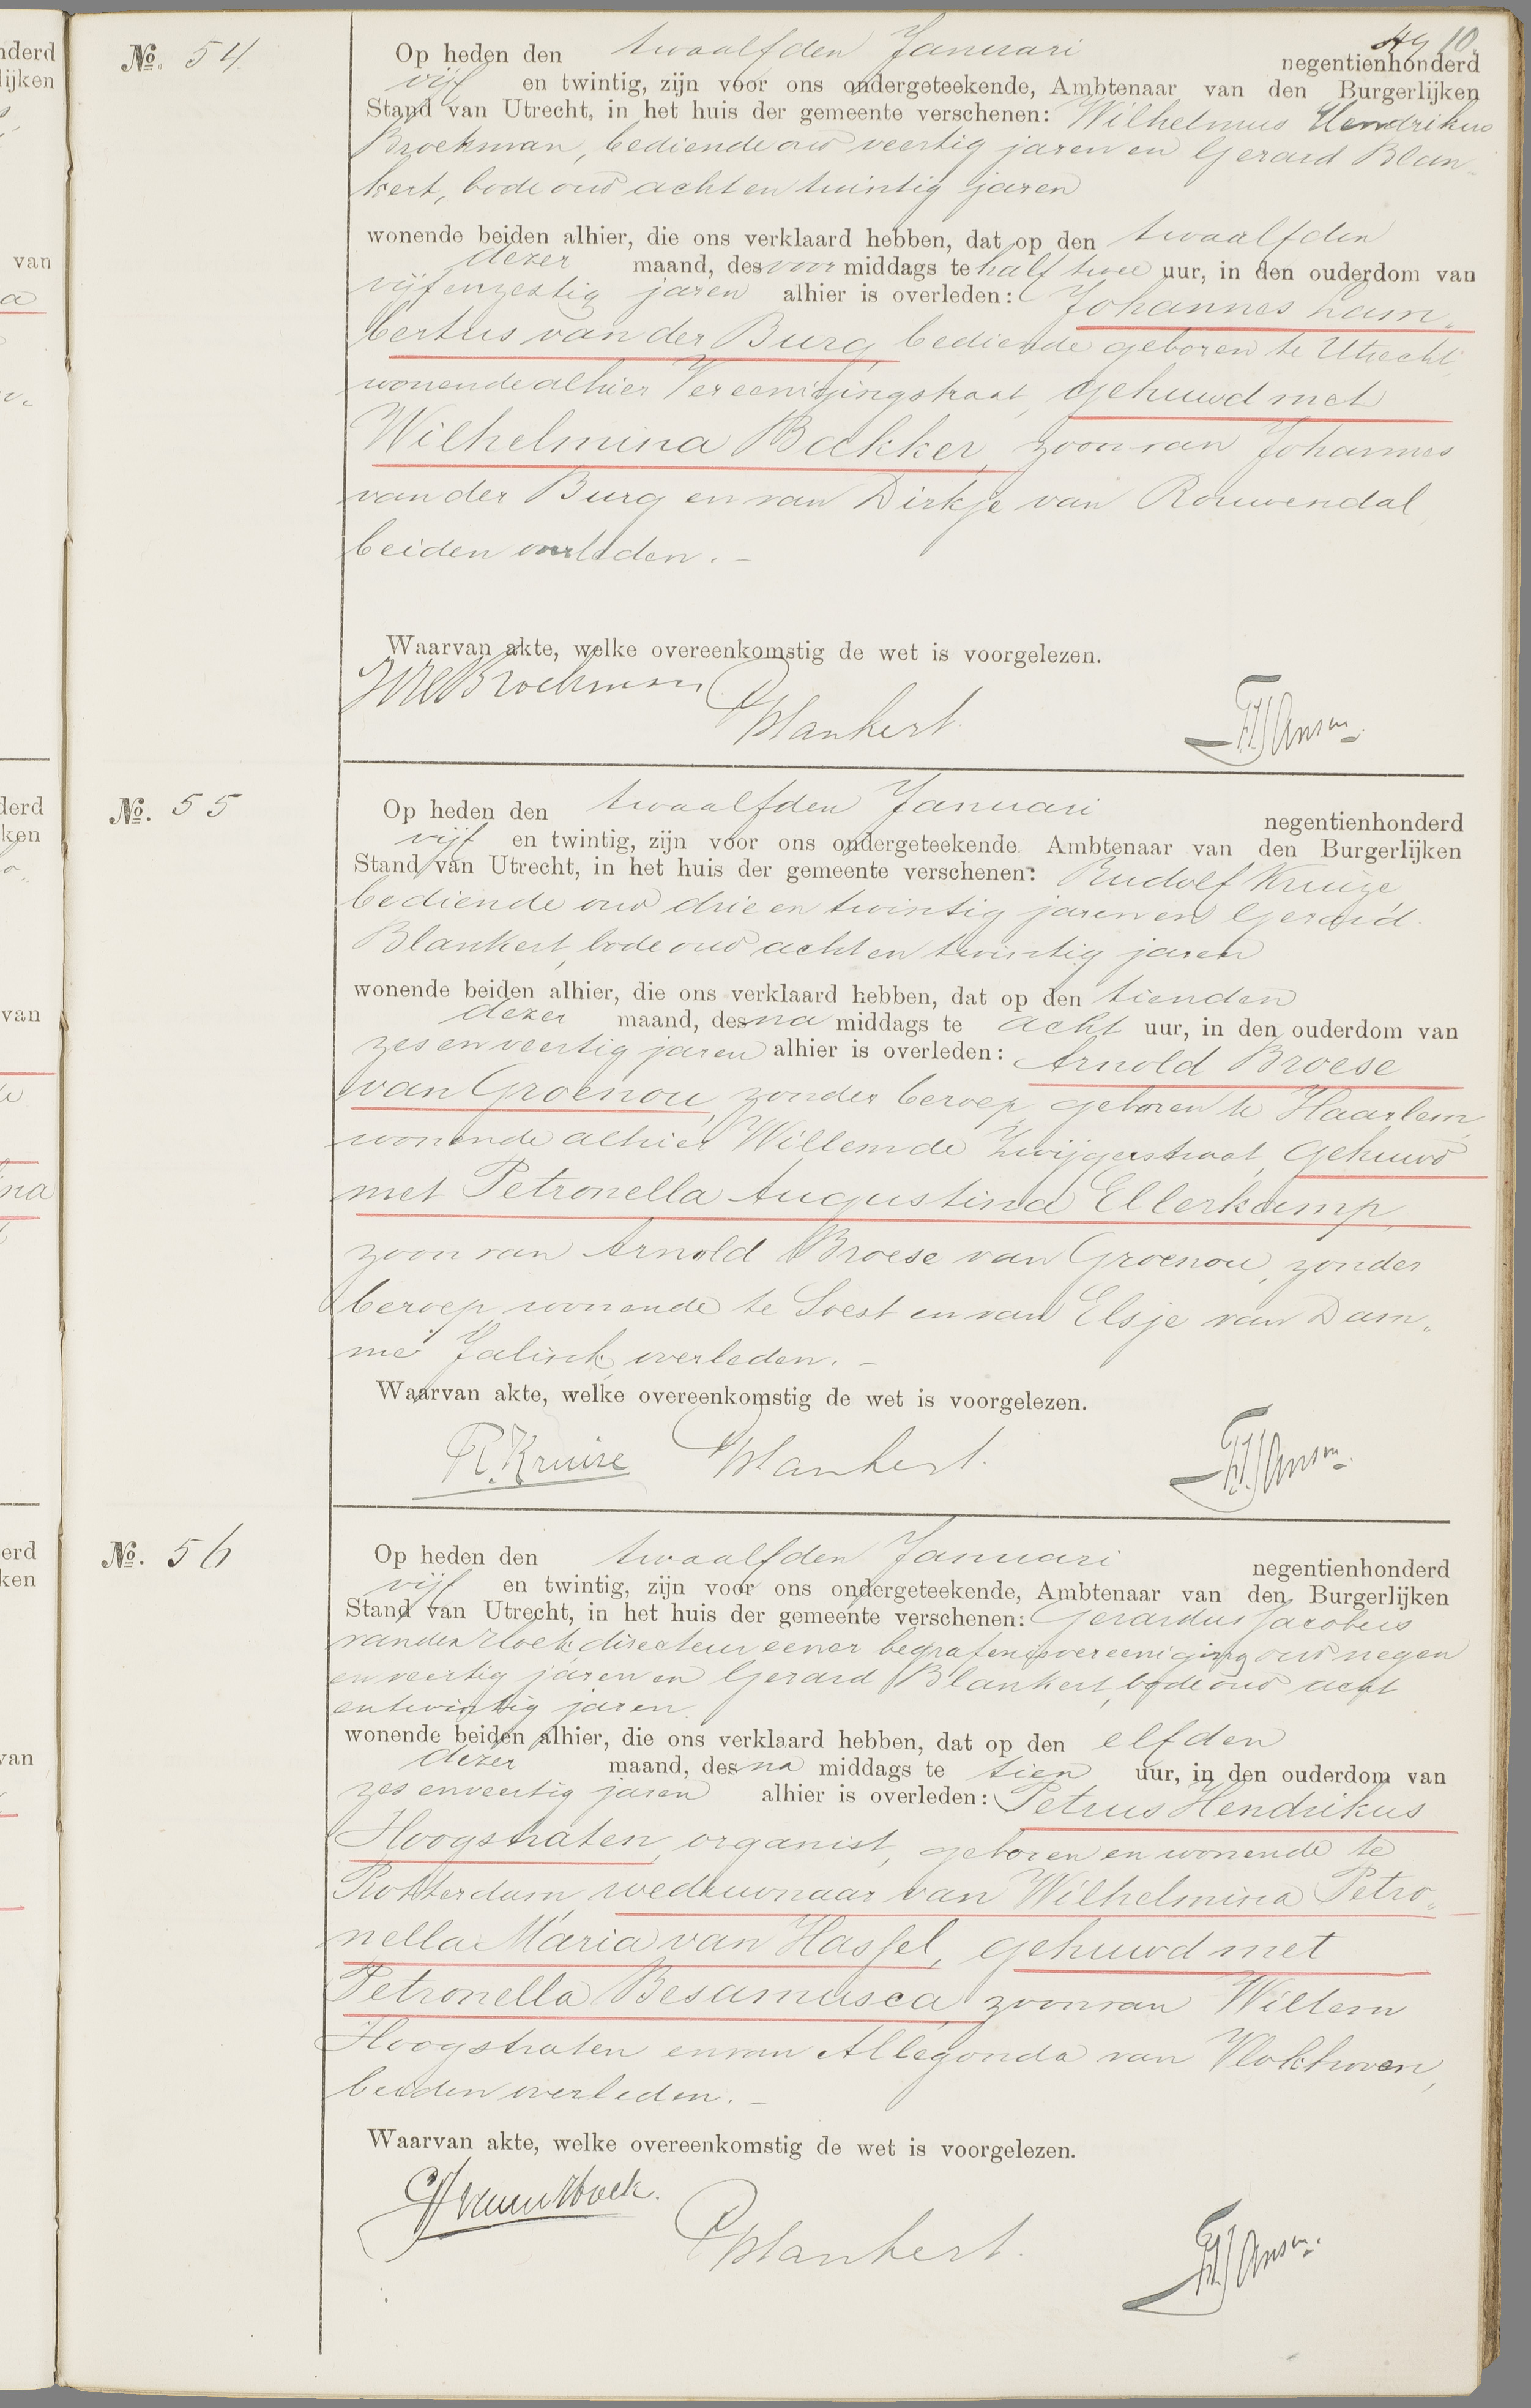 10
No. 54
Op heden den twaalfden Januari negentienhonderd
vijf en twintig, zijn voor ons ondergeteekende, Ambtenaar van den Burgerlijken
Stand van Utrecht, in het huis der gemeente verschenen: Wilhelmus Hendrikus
Broekman, bediende oud veertig jaren en Gerard Blan-
kert, bode oud acht en twintig jaren
wonende beiden alhier, die ons verklaard hebben, dat op den twaalfden
dezer maand, des voor middags te half twee uur, in den ouderdom van
vijf en zestig jaren alhier is overleden: Johannes Lam„
bertus van der Burg, bediende geboren te Utrecht,
wonende alhier Vereenigingstraat, gehuwd met
Wilhelmina Bakker, zoon van Johannes
van der Burg en van Dirkje van Rouwendal
beiden overleden. –
Waarvan akte, welke overeenkomstig de wet is voorgelezen.
WHBroekman GBlankert
No. 55
Op heden den twaalfden Januari negentienhonderd
vijf en twintig, zijn voor ons ondergeteekende Ambtenaar van den Burgerlijken
Stand van Utrecht, in het huis der gemeente verschenen: Rudolf Kruize,
bediende oud drie en twintig jaren en Gerard
Blankert, bode oud acht en twintig jaren
wonende beiden alhier, die ons verklaard hebben, dat op den tienden
dezer maand, des na middags te acht uur, in den ouderdom van
zes en veertig jaren alhier is overleden: Arnold Broese
van Groenou, zonder beroep, geboren te Haarlem,
wonende alhier Willem de Zwijgerstraat, gehuwd
met Petronella Augustina Ellerkamp,
zoon van Arnold Broese van Groenou, zonder
beroep, wonende te Soest en van Elsje van Dam„
me Jalink, overleden. –
Waarvan akte, welke overeenkomstig de wet is voorgelezen.
R. Kruize GBlankert.
No. 56
Op heden den twaalfden Januari negentienhonderd
vijf en twintig, zijn voor ons ondergeteekende, Ambtenaar van den Burgerlijken
Stand van Utrecht, in het huis der gemeente verschenen: Gerardus Jacobus
directeur eener begrafenisvereeniging oud negen
en veertig jaren en Gerard Blankert, bode oud acht
en twintig jaren
wonende beiden alhier, die ons verklaard hebben, dat op den elfden
dezer maand, des na middags te tien uur, in den ouderdom van
zes en veertig jaren alhier is overleden: Petrus Hendrikus
Hoogstraten, organist, geboren en wonende te
Rotterdam, weduwnaar van Wilhelmina Petro„
nella Maria van Hassel, gehuwd met
Petronella Besamusca, zoon van Willem
Hoogstraten en van Allegonda van Vlokhoven,
beiden overleden. –
Waarvan akte, welke overeenkomstig de wet is voorgelezen.
GBlankert.